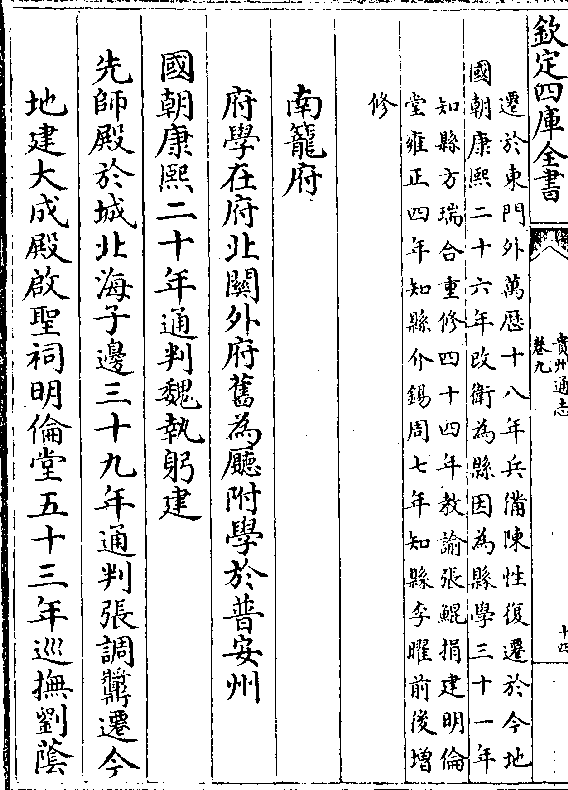 欽定四庫全書
貴州通志
卷九
十四
遷於東門外萬厯十八年兵備陳性復遷於今地
國朝康熙二十六年改衛為縣因為縣學三十一年
知縣方瑞合重修四十四年教諭張鯤捐建明倫
堂雍正四年知縣介錫周七年知縣李曜前後增
修
南籠府
府學在府北關外府舊為廳附學於普安州
國朝康熙二十年通判魏執躬建
先師殿於城北海子邊三十九年通判張調遷今
地建大成殿啟聖祠明倫堂五十三年巡撫劉蔭